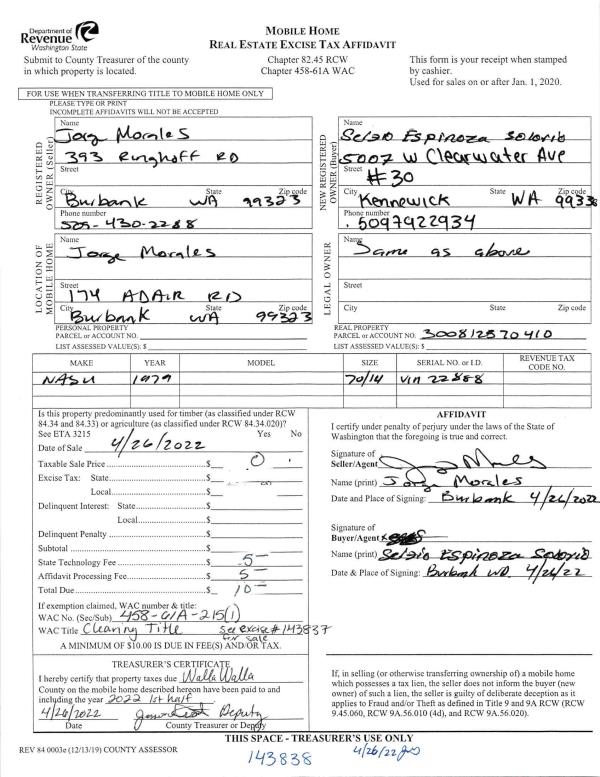 Department of
Revenue
Washington State
Submit to County Treasurer of the county
in which property is located.
MOBILE HOME
REAL ESTATE EXCISE TAX AFFIDAVIT
Chapter 82.45 RCW
Chapter 458-61A WAC
This form is your receipt when stamped
by cashier.
Used for sales on or after Jan. 1, 2020.
FOR USE WHEN TRANSFERRING TITLE TO MOBILE HOME ONLY
PLEASE TYPE OR PRINT
INCOMPLETE AFFIDAVITS WILL NOT BE ACCEPTED
REGISTERED OWNER (Seller)
Name
Jorge Morales
393 Ringhoff RD
Street
City State Zip code
Burbank WA 99323
Phone number
509-430-2288
NEW REGISTERED OWNER (Buyer)
Name
Sergio Espinoza Solorio
5007 W Clearwater Ave
Street
#30
City State Zip code
Kennewick WA 9933
Phone number
5097922934
LOCATION OF MOBILE HOME
Name
Jorge Morales
Street
174 ADAIR RD
City State Zip code
Burbank WA 99323
LEGAL OWNER
Name
Same as above
Street
City State Zip code
PERSONAL PROPERTY
PARCEL or ACCOUNT NO.
LIST ASSESSED VALUE(S): $
REAL PROPERTY
PARCEL or ACCOUNT NO. 300812570410
LIST ASSESSED VALUE(S): $
MAKE YEAR MODEL SIZE SERIAL NO. or I.D. REVENUE TAX CODE NO.
NASU 1979 70/14 Vin 22888
Is this property predominantly used for timber (as classified under RCW
84.34 and 84.33) or agriculture (as classified under RCW 84.34.020)?
See ETA 3215 Yes No
Date of Sale 4/26/2022
Taxable Sale Price $ 0
Excise Tax: State $
Local $
Delinquent Interest: State $
Local $
Delinquent Penalty $
Subtotal $
State Technology Fee $ 5-
Affidavit Processing Fee $ 5-
Total Due $ 10-
If exemption claimed, WAC number & title:
WAC No. (Sec/Sub) 458-61A-215(1)
WAC Title Clearing Title see excise #143837
for sale
A MINIMUM OF $10.00 IS DUE IN FEE(S) AND/OR TAX.
AFFIDAVIT
I certify under penalty of perjury under the laws of the State of
Washington that the foregoing is true and correct.
Signature of
Seller/Agent
Name (print) Jorge Morales
Date and Place of Signing: Burbank 4/26/2022
Signature of
Buyer/Agent
Name (print) Sergio Espinoza Solorio
Date & Place of Signing: Burbank WA. 4/26/22
TREASURER'S CERTIFICATE
I hereby certify that property taxes due Walla Walla
County on the mobile home described hereon have been paid to and
including the year 2022 1st half.
4/26/2022 Deputy
Date County Treasurer or Deputy
If, in selling (or otherwise transferring ownership of) a mobile home
which possesses a tax lien, the seller does not inform the buyer (new
owner) of such a lien, the seller is guilty of deliberate deception as it
applies to Fraud and/or Theft as defined in Title 9 and 9A RCW (RCW
9.45.060, RCW 9A.56.010 (4d), and RCW 9A.56.020).
THIS SPACE - TREASURER'S USE ONLY
REV 84 0003e (12/13/19) COUNTY ASSESSOR
143838
4/26/22